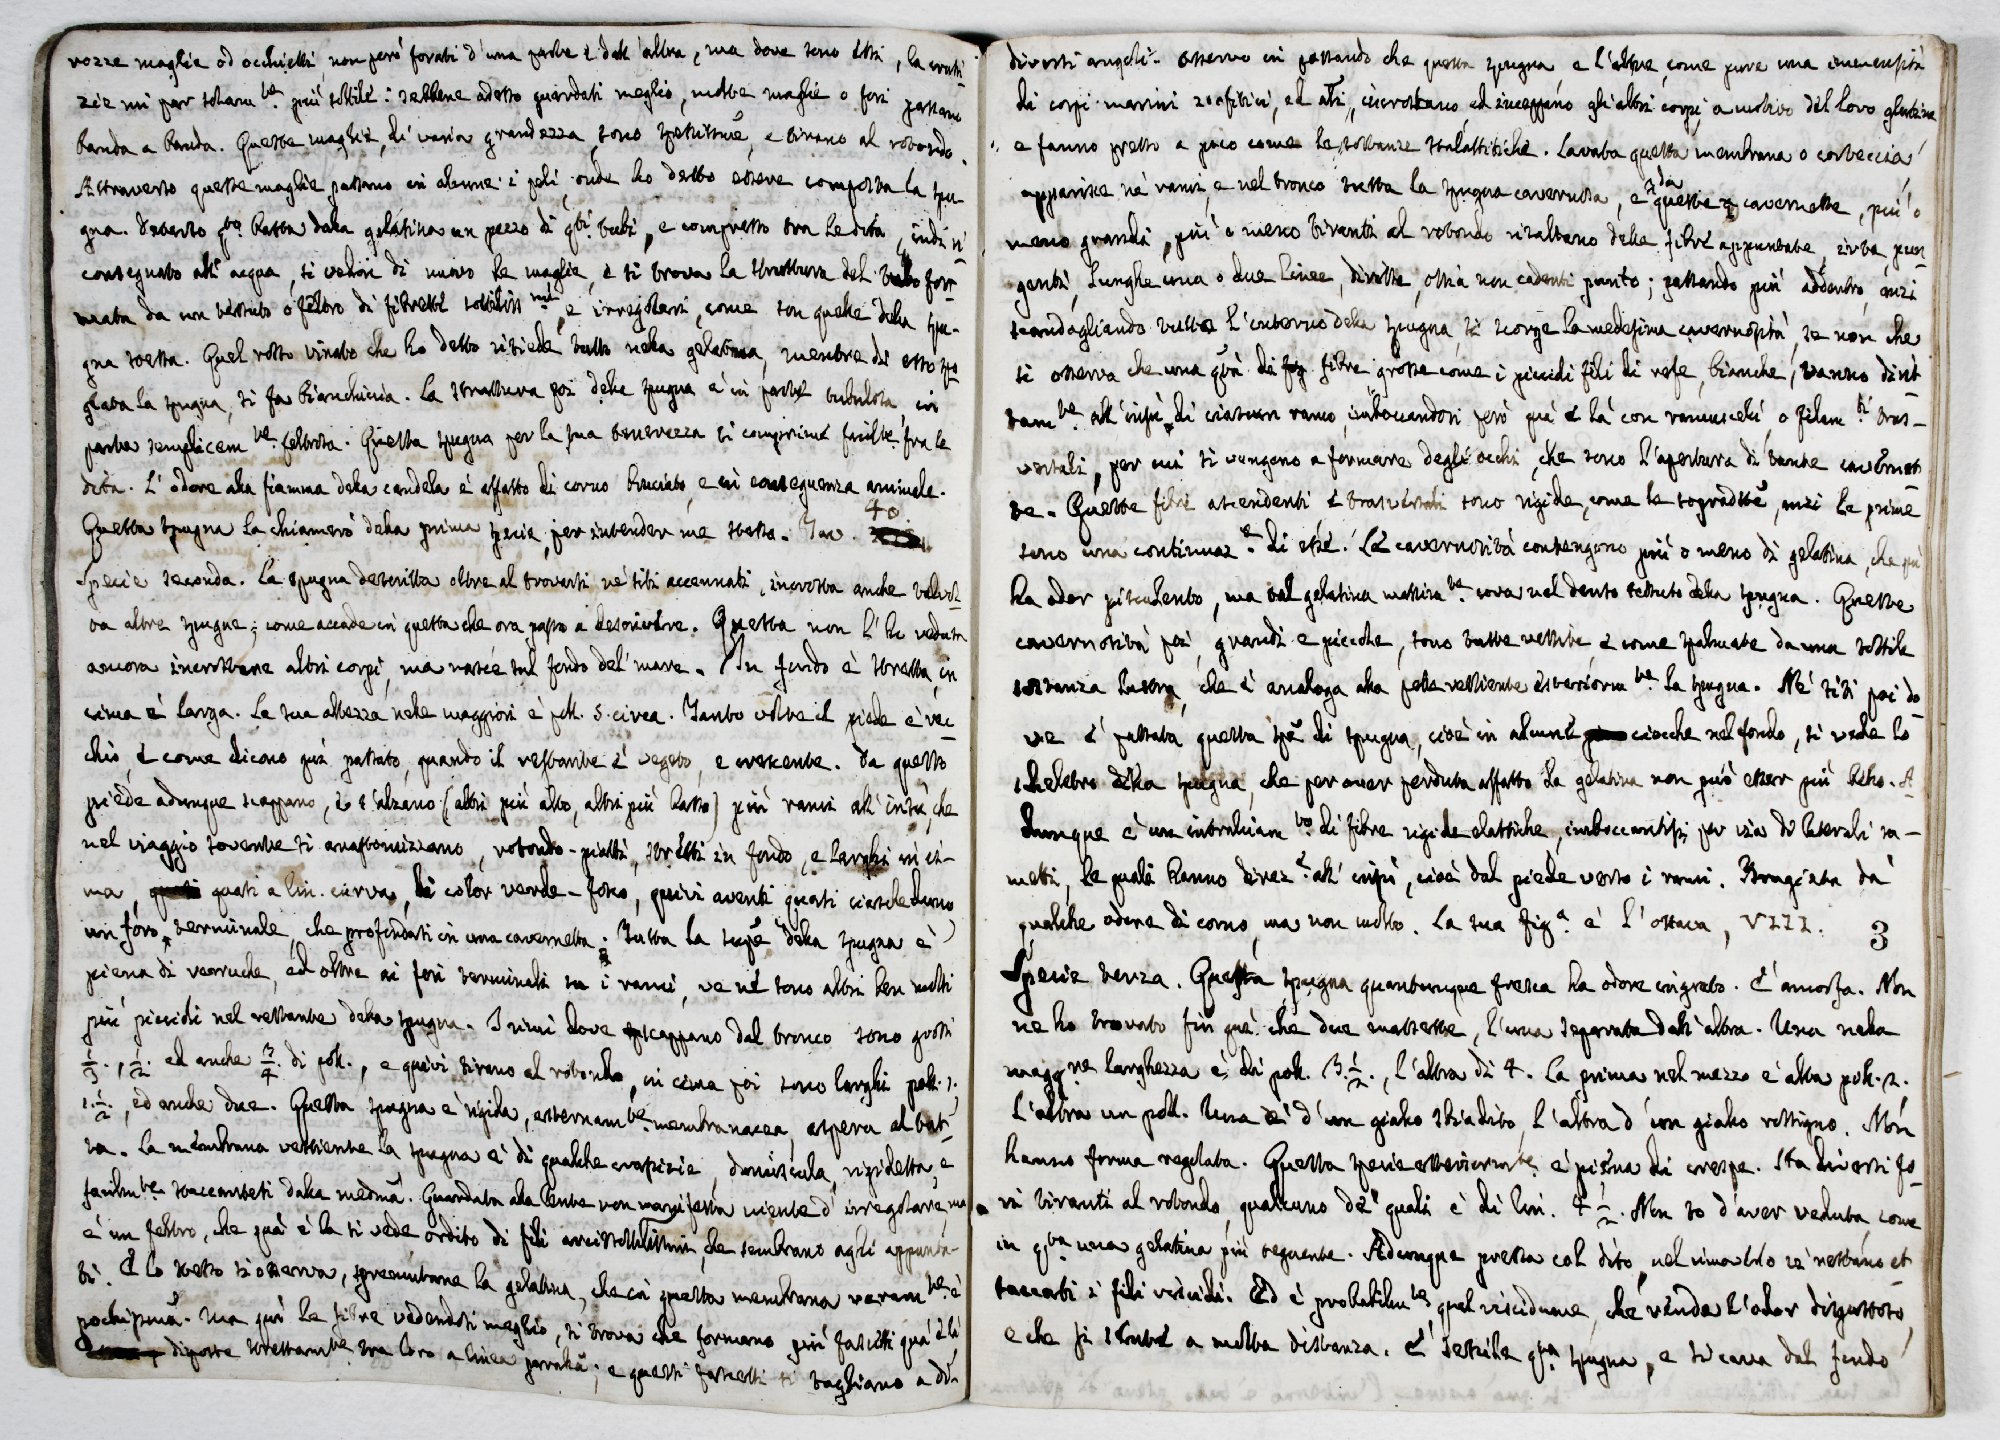 rozze maglie od occhietti, non però forati d'una parte e dall'altra, ma dove sono essi, la crosti
zie mi par soltan.te più sottile: sebbene adesso guardati meglio, molte maglie o fori passano
banda a banda. Queste maglie, di varia grandezza, sono spessissme, e tirano al rotondo.
Attraverso queste maglie passano in alcune i peli, onde ho detto essere composta la spu-
gna. Detersa pto. batta dalla gelatina un pezzo di qti. tubi, e compresso tra le dita, indi ri
consegnato all'acqua, si vedon di nuovo le maglie, e si trova la struttura del tubo for-
mata da un tessuto o feltro di fibrette sottiliss.me, e irregolari, come son quelle della spu-
gna stessa. Quel rosso vinato che ho detto risiede tutto nella gelatina, mentre di esso spo
gliata la spugna, si fa bianchiccia. La struttura poi della spugna è in parte tubulosa, in
parte semplicem.te feltrosa. Questa spugna per la sua tenerezza si comprime facilte. fra le
dita. L'odore alla fiamma della candela è affatto di corno bruciato, e in conseguenza animale.
Questa spugna la chiamerò della prima specie, per intender me stesso. 40
Specie seconda. La spugna descritta oltre al trovarsi ne' siti accennati, incrosta anche talvol-
ta altre spugne; come accade in questa che ora passo a descrivere. Questa non l'ho veduta
ancora incrostare altri corpi, ma nasce sul fondo del mare. In fondo è stretta, in
cima è larga. La sua altezza nelle maggiori è poll. 5. circa. Tanto volte il piede è vec
chio, e come dicono già passato, quando il restante è vegeto, e crescente. Da questo
piede adunque scappano, e s'alzano (altri più alto, altri più basso) più rami all'insù, che
nel viaggio sovente si anastomizzano, rotondo-piatti, stretti in fondo, e larghi in ci-
ma, quasi a lin. curva, di color verde-fosco, quivi aventi quasi ciascheduno
un foro terminale, che profondasi in una cavernetta. Tutta la supe. della spugna è
piena di verruche, ed oltre ai fori terminali su i rami, ve né sono altri ben molti
più piccioli nel restante della spugna. I rami dove scappano dal tronco sono grossi
1/3., 1/2. ed anche 3/4. di poll., e quivi tirano al rotondo, in cima poi sono larghi poll. 1.
1. 1/2, ed anche due. Questa spugna è rigida, esternam.te membranacea, aspera al tat-
to. La membrana vestiente la spugna è di qualche crassizie, duriuscula, rigidetta, e
facilm.te staccantesi dalla medma. Guardata alla lente non manifesta niente d'irregolare, ma
è un feltro, che quà e là si vede ordito di fili arcisottilissimi, che sembrano aghi appunta-
ti. E lo stesso si osserva, spremutane la gelatina, che in questa membrana veram.te è
pochissma. Ma più le fibre vedendosi meglio, si trova che formano più fascetti quà e là,
disposte strettam.te tra loro a linea paralla; e questi fascetti si tagliano a di-
diversi angoli. Osservo in passando che questa spugna, e l'altre, come pure una immensità
di corpi marini zoofitici, ed altri, incrostano, ed inceppano gli altri corpi, a motivo del loro glutine
e fanno presso a poco come le sostanze stalattitiche. Levata questa membrana o corteccia,
apparisce ne' rami, e nel tronco tutta la spugna cavernosa, e da queste cavernette, più o
meno grandi, più o meno tiranti al rotondo risaltano delle fibre appuntate, irte, pun-
genti, lunghe una o due linee, diritte, ossia non cadenti punto; passando più addentro, anzi
scandagliando tutto l'interno della spugna, si scorge la medesima cavernosità, se non che
si osserva che una qtà. di fibre grosse come i piccioli fili di refe, bianche, vanno dirit
tam.te all'insù di ciascun ramo, imboccandosi però quà e là con ramuscelli, o filam.ti tras-
versali, per cui si vengono a formare degli occhi, che sono l'apertura di tante cavernet-
te. Queste fibre ascendenti e trasversali sono rigide, come le sopraddte, anzi le prime
sono una continuaz.e di esse. Le cavernosità contengono più o meno di gelatina, che più
ha odor pisculento, ma tal gelatina massim.te cova nel denso tessuto della spugna. Queste
cavernosità poi, grandi e picciole, sono tutte vestite e come spalmate da una sottile
sostanza lustra, che è analoga alla pelle vestiente esteriorm.te la spugna. Ne' siti poi do-
ve è passata questa spe. di spugna, cioè in alcune ciocche nel fondo, si vede lo
scheletro della spugna, che per aver perduta affatto la gelatina non può esser più bello. A
dunque è un intralciam.to di fibre rigide elastiche, imboccantisi per via di laterali ra-
metti, le quali hanno direz.e all'insù, cioè dal piede verso i rami. Brugiata dà
qualche odore di corno, ma non molto. La sua fig.a è l'ottava, VIII. 3
Specie terza. Questa spugna quantunque fresca ha odore ingrato. È amorfa. Non
ne ho trovato fin quì che due massette, l'una separata dall'altra. Una nella
magg.re larghezza è di poll. 3 1/2., l'altra di 4. La prima nel mezzo è alta poll. 2.
l'altra un poll. Una è d'un giallo sbiadito, l'altra d'un giallo rossigno. Non
hanno forma regolata. Questa specie esteriorm.te è piena di crespe. Ha diversi fo-
ri tiranti al rotondo, qualcuno de' quali è di lin. 4 1/2. Non so d'aver veduta come
in qta una gelatina più seguente. Adunque pressa col dito, nel rimuoverlo se ne stanno at
taccati i fili viscidi. Ed è probabilm.te quel viscidume, che rende l'odor disgustoso,
e che si sente a molta distanza. È sessile qta. spugna, e si cava dal fondo